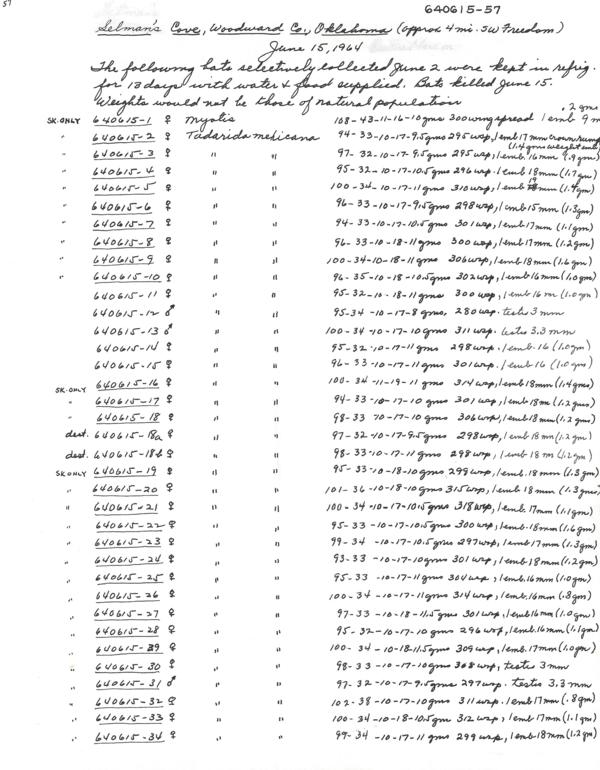 57
640615-57
Selman's Cove, Woodward Co., Oklahoma (approx 4 mi. SW Freedom)
June 15, 1964
The following bats selectively collected June 2 were kept in refrig.
for 13 days with water & food supplied. Bats killed June 15.
Weights would not be those of natural population
.2 gms
SK. ONLY 640615-1 ♀ Myotis 108-43-11-16-10gms 300 wingspread 1 emb 9 m
" 640615-2 ♀ Tadarida mexicana 94-33-10-17-9.5gms 295 wsp, 1 emb 17 mm crown rump
(1.4gms weight emb)
" 640615-3 ♀ " " 97-32-10-17-9.5gms 295 wsp, 1 emb. 16mm (.9gm)
" 640615-4 ♀ " " 95-32-10-17-10.5gms 296 wsp. 1 emb 18mm (1.7gm)
" 640615-5 ♀ " " 100-34-10-17-11gms 310 wsp, 1 emb 19mm (1.9gm)
" 640615-6 ♀ " " 96-33-10-17-9.5gms 298 wsp, 1 emb 15mm (1.3gm)
" 640615-7 ♀ " " 94-33-10-17-10.5gms 301 wsp, 1 emb 17mm (1.1gm)
" 640615-8 ♀ " " 96-33-10-18-11gms 300 wsp, 1 emb 17mm (1.2gm)
" 640615-9 ♀ " " 100-34-10-18-11gms 306 wsp, 1 emb 18mm (1.6gm)
" 640615-10 ♀ " " 96-35-10-18-10.5gms 302 wsp, 1 emb 16mm (1.0gm)
640615-11 ♀ " " 95-32-10-18-11gms 300 wsp, 1 emb 16 m (1.0gm)
640615-12 ♂ " " 95-34-10-17-8gms, 280 wsp. testis 3 mm
640615-13 ♂ " " 100-34-10-17-10gms 311 wsp. testis 3.3 mm
640615-14 ♀ " " 95-32-10-17-11gms 298 wsp. 1 emb. 16 (1.0gm)
640615-15 ♀ " " 96-33-10-17-11gms 301 wsp. 1 emb 16 (1.0gm)
SK. ONLY 640615-16 ♀ " " 100-34-11-19-11gms 314 wsp, 1 emb 18mm (1.4gms)
" 640615-17 ♀ " " 94-33-10-17-10gms 301 wsp, 1 emb 18m (1.2gms)
" 640615-18 ♀ " " 98-33-10-17-10gms 306 wsp, 1 emb 18mm (1.2gms)
dest. 640615-18a ♀ " " 97-32-10-17-9.5gms 298 wsp, 1 emb 18mm (1.2gm)
dest. 640615-18b ♀ " " 98-33-10-17-11gms 298 wsp, 1 emb 18 m (1.2gm)
SK ONLY 640615-19 ♀ " " 95-33-10-18-10gms 299 wsp, 1 emb. 18mm (1.3gm)
" 640615-20 ♀ " " 101-36-10-18-10gms 315 wsp, 1 emb 18mm (1.3gms)
" 640615-21 ♀ " " 100-34-10-17-10.5gms 318 wsp, 1 emb. 17mm (1.1gm)
" 640615-22 ♀ " " 95-33-10-17-10.5gms 300 wsp, 1 emb. 18mm (1.6gm)
" 640615-23 ♀ " " 99-34-10-17-10.5gms 297 wsp, 1 emb 17mm (1.3gm)
" 640615-24 ♀ " " 93-33-10-17-10gms 301 wsp, 1 emb 18mm (1.2gm)
" 640615-25 ♀ " " 95-33-10-17-11gms 304 wsp, 1 emb. 16mm (1.0gm)
" 640615-26 ♀ " " 100-34-10-17-11gms 314 wsp, 1 emb 16mm (.8gm)
" 640615-27 ♀ " " 97-33-10-18-11.5gms 301 wsp, 1 emb 16mm (1.0gm)
" 640615-28 ♀ " " 95-32-10-17-10gms 296 wsp, 1 emb. 16mm (1.1gm)
" 640615-29 ♀ " " 100-34-10-18-11.5gms 309 wsp, 1 emb. 17mm (1.0gm)
" 640615-30 ♂ " " 98-33-10-17-10gms 308 wsp, testis 3 mm
" 640615-31 ♂ " " 97-32-10-17-9.5gms 297 wsp. testis 3.3 mm
" 640615-32 ♀ " " 102-38-10-17-10gms 311 wsp. 1 emb 17mm (.8gm)
" 640615-33 ♀ " " 100-34-10-18-10.5gm 312 wsp, 1 emb 17mm (1.1gm)
" 640615-34 ♀ " " 99-34-10-17-11gms 299 wsp, 1 emb 18mm (1.2gm)